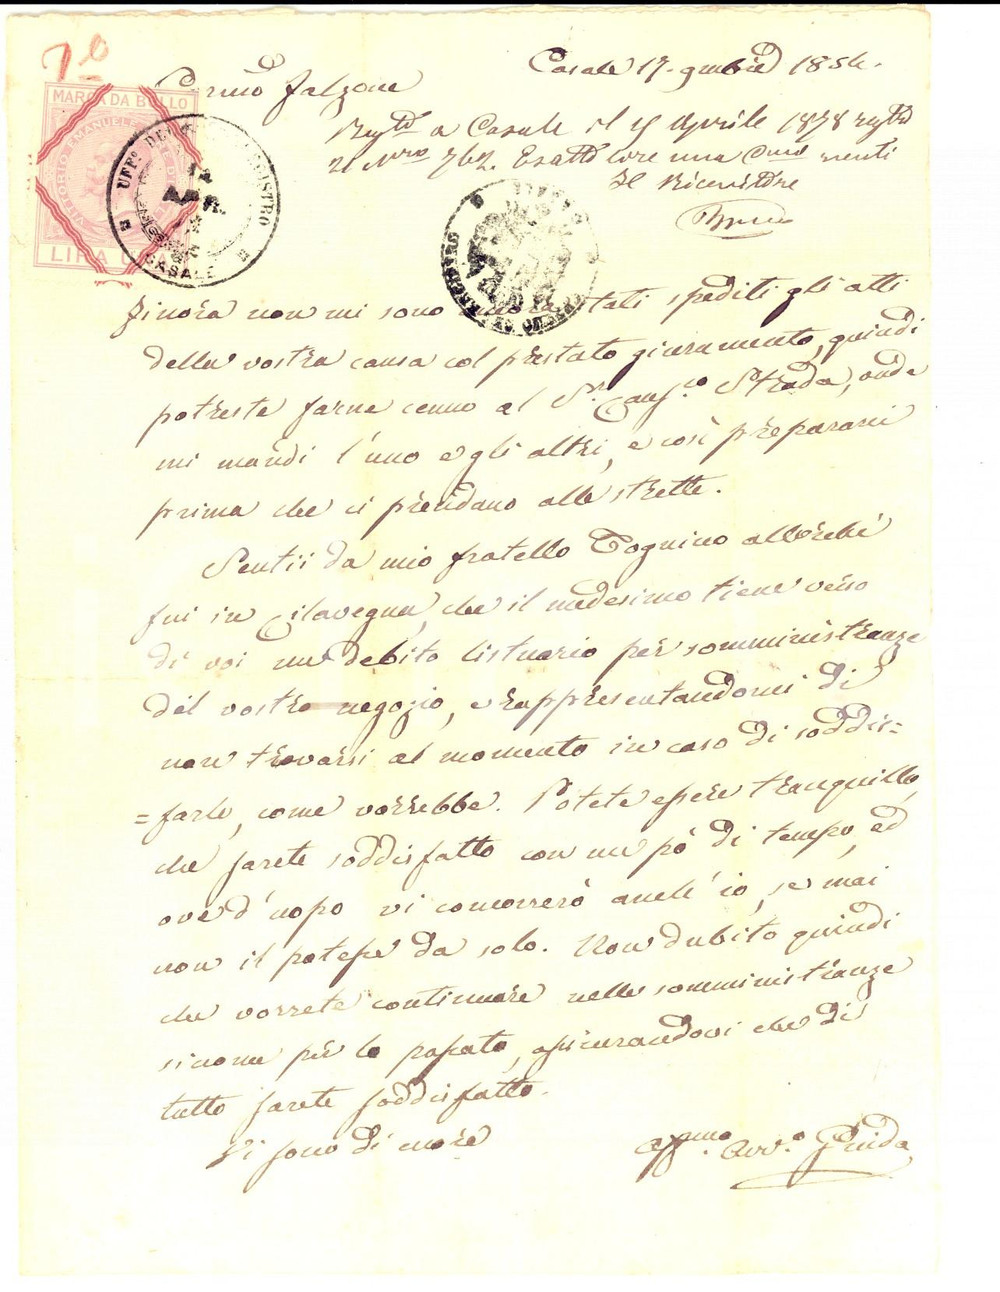 7º
MARCA DA BOLLO
VITTORIO EMANUELE
LIRA UNA
UFFº DEL REGISTRO
CASALE
Casale 17 gmbre 1854.
Carmo Falzone
Regto a Casale il 15 Aprile 1878 regtro
21 Nro 762. Esatto lire una Cmi venti
Il Ricevitore
finora non mi sono ancora stati spediti gli atti
della vostra causa col prestato giuramento, quindi
potreste farne cenno al Sr. Caus.co Strada, onde
mi mandi l'uno e gli altri, e così prepararci
prima che ci prendano alle strette.
Sentii da mio fratello Tognino allorchè
fui in Cilavegna, che il medesimo tiene verso
di voi un debito listuario per somministranze
del vostro negozio, e rappresentandomi di
non trovarsi al momento in caso di soddis=
=farlo, come vorrebbe. Potete essere tranquillo,
che sarete soddisfatto con un pò di tempo, ed
ove d'uopo vi concorrerò anch'io, se mai
non il potesse da solo. Non dubito quindi
che vorrete continuare nelle somministranze
siccome per lo passato, assicurandovi che di
tutto sarete soddisfatto.
Vi sono di cuore
Affmo. Avv.o Guida